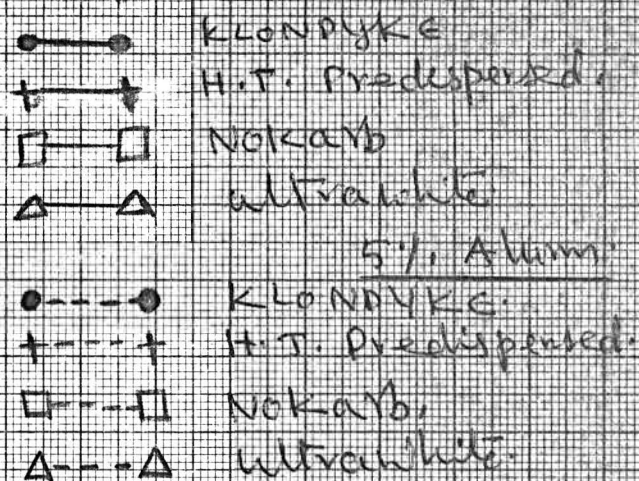 KLONDYKE
H.T. Predispersed.
Nokarb
ultrawhite
5% Alum.
KLONDYKE.
H.T. Predispersed.
Nokarb,
ultrawhite.